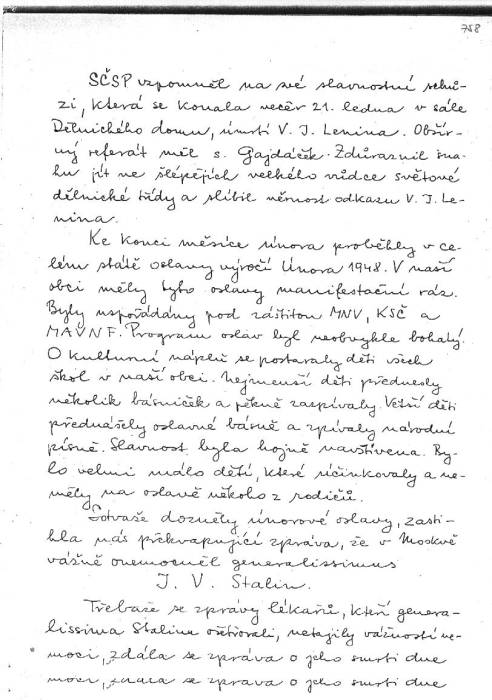 758
SČSP vzpomněl na své slavnostní schů-
zi, která se konala večer 21. ledna v sále
Dělnického domu, úmrtí V. I. Lenina. Obšír-
ný referát měl s. Gajdáček. Zdůraznil sna-
hu jít ve šlépějích velkého vůdce světové
dělnické třídy a slíbil věrnost odkazu V. I. Le-
nina.
Ke konci měsíce února proběhly v ce-
lém státě oslavy výročí Února 1948. V naší
obci měly tyto oslavy manifestační ráz.
Byly uspořádány pod záštitou MNV, KSČ a
MAVNF. Program oslav byl neobvykle bohatý.
O kulturní náplň se postaraly děti všech
škol v naší obci. Nejmenší děti přednesly
několik básniček a pěkně zazpívaly. Větší děti
přednášely oslavné básně a zpívaly národní
písně. Slavnost byla hojně navštívena. By-
lo velmi málo dětí, které účinkovaly a ne-
měly na oslavě někoho z rodičů.
Sotvaže dozněly únorové oslavy, zasti-
hla nás překvapující zpráva, že v Moskvě
vážně onemocněl generalissimus
J. V. Stalin.
Třebaže se zprávy lékařů, kteří genera-
lissima Stalina ošetřovali, netajily vážností ne-
moci, zdála se zpráva o jeho smrti dne
moci, zdála se zpráva o jeho smrti dne